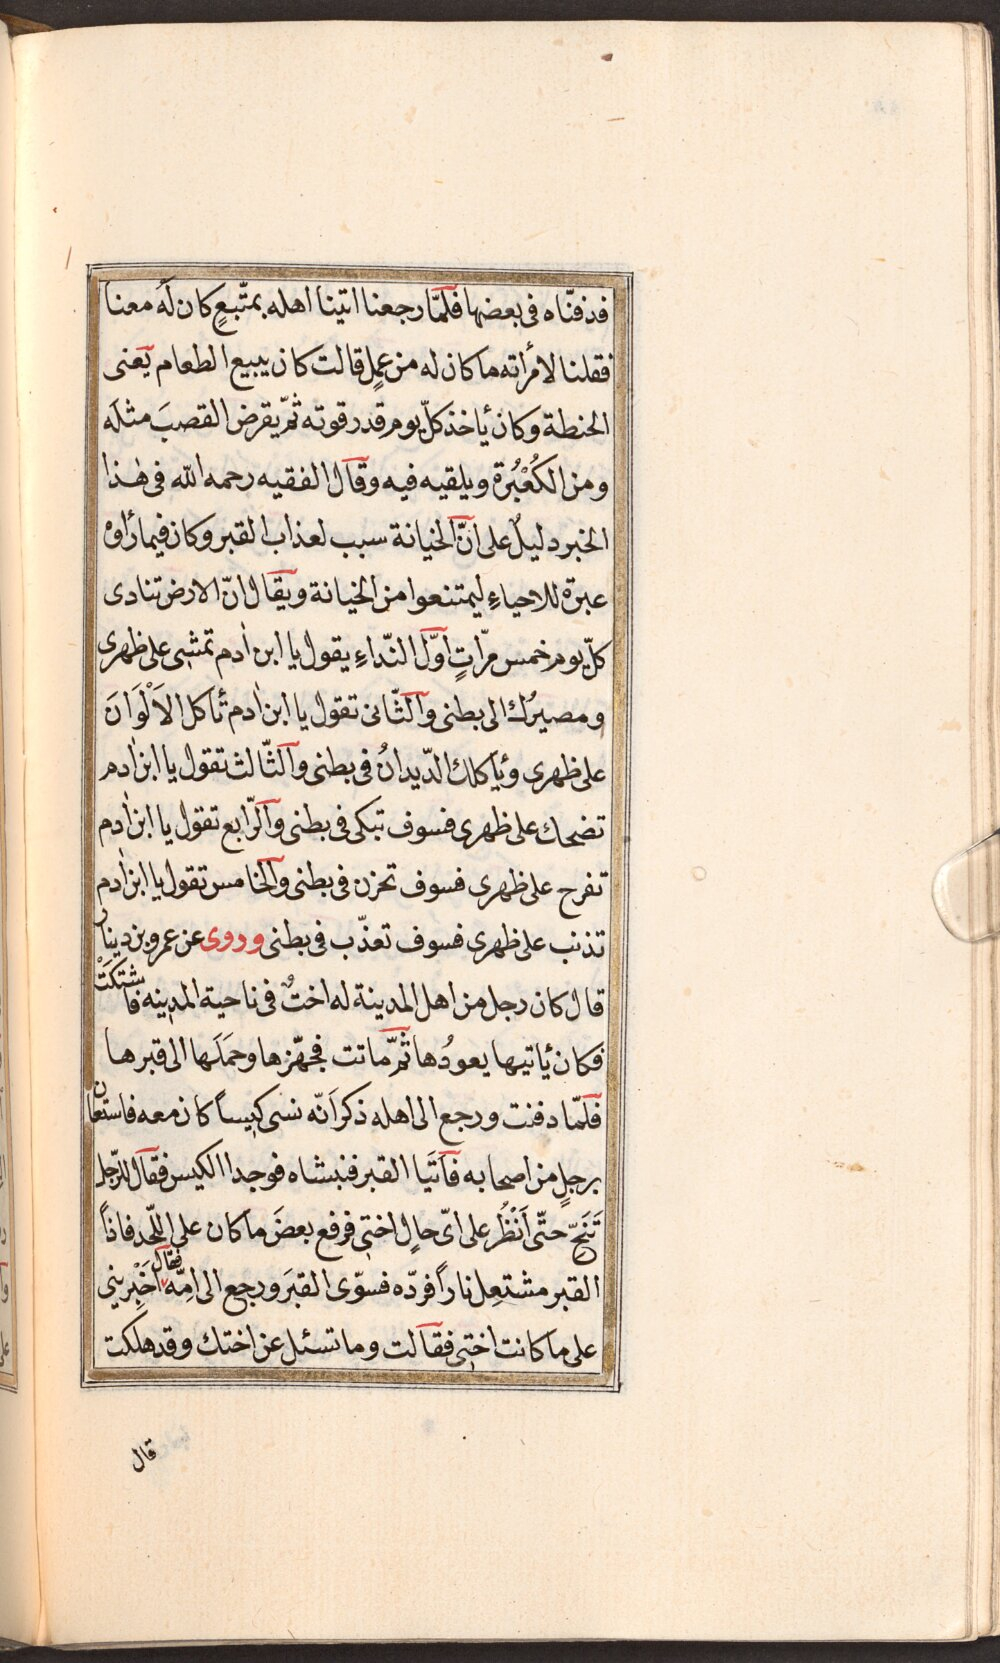 فدفنّاه فى بعضها فلمّا رجعنا اتينا اهله بمتّبعٍ كان لَه معنا
فقلنا لامرأته ما كان له من عملٍ قالت كان يبيع الطعام يعنى
الحنطة وكان يأخذ كلّ يوم قدر قوته ثمّ يقرض القصبَ مثلَه
ومن الكُعْبُرة ويلقيه فيه وقال الفقيه رحمه الله فى هٰذا
الخبر دليلٌ على انّ الخيانة سبب لعذاب القبر وكان فيما رأوه
عبرة للاحياءِ ليمتنعوا من الخيانة ويقال انّ الارض تنادى
كلّ يوم خمس مرّاتٍ اوّل النّداءِ يقول يا ابن اٰدم تمشى على ظهرى
ومصيرُك الى بطنى والثّانى تقول يا ابن اٰدم تأكل الاَلْوَانَ
على ظهرى ويأكلك الدّيدانُ فى بطنى والثّالث تقول يا ابن اٰدم
تضحك على ظهرى فسوف تبكى فى بطنى والرّابع تقول يا ابن اٰدم
تفرح على ظهرى فسوف تحزن فى بطنى والخامس تقول يا ابن اٰدم
تذنب على ظهرى فسوف تعذّب فى بطنى وروى عن عمرو بن دينار
قال كان رجل من اهل المدينة له اختٌ فى ناحية المدينه فاشتكَتْ
فكان يأتيها يعودُها ثمّ ماتت فجهّزها وحمَلَها الى قبرها
فلمّا دفنت ورجع الى اهله ذكر اَنّه نسى كيساً كان معه فاستعان
برجلٍ من اصحابه فاَتَيا القبر فنبشاه فوجدا الكيس فقال للرّجل
تَنَحّ حتّى اَنْظُر على اىّ حالٍ اختى فرفع بعضَ ما كان على اللّحد فاذاً
القبر مشتعِل ناراً فردّه فسوّى القبَر ورجع الى امِّه فقال اَخْبِرينى
على ما كانت اختى فقالت وما تسئل عن اختك وقد هلكت
قال